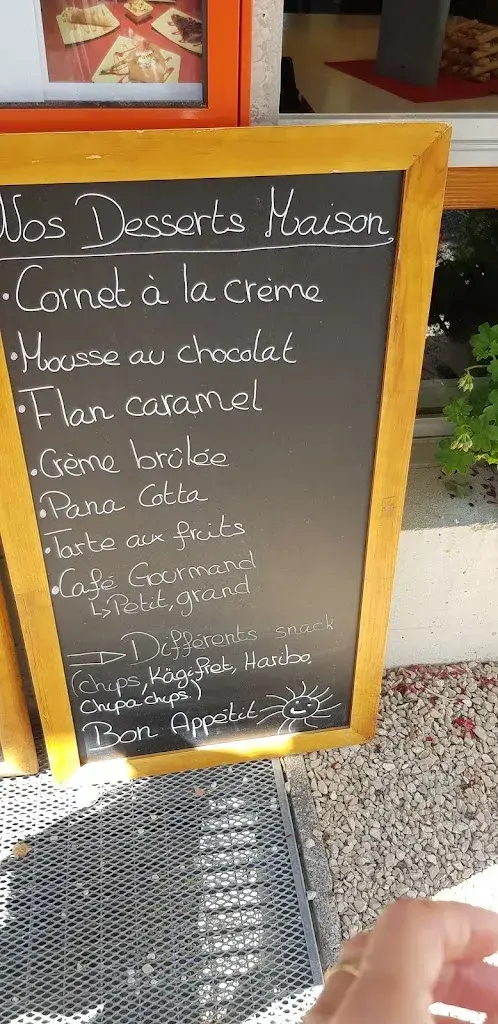 Nos Desserts Maison
• Cornet à la crème
• Mousse au chocolat
• Flan caramel
• Crème brûlée
• Pana Cotta
• Tarte aux fruits
• Café Gourmand
↳ Petit, grand
⇒ Différents snack
(chips, Kägifret, Haribo,
Chupa chups.)
Bon Appétit